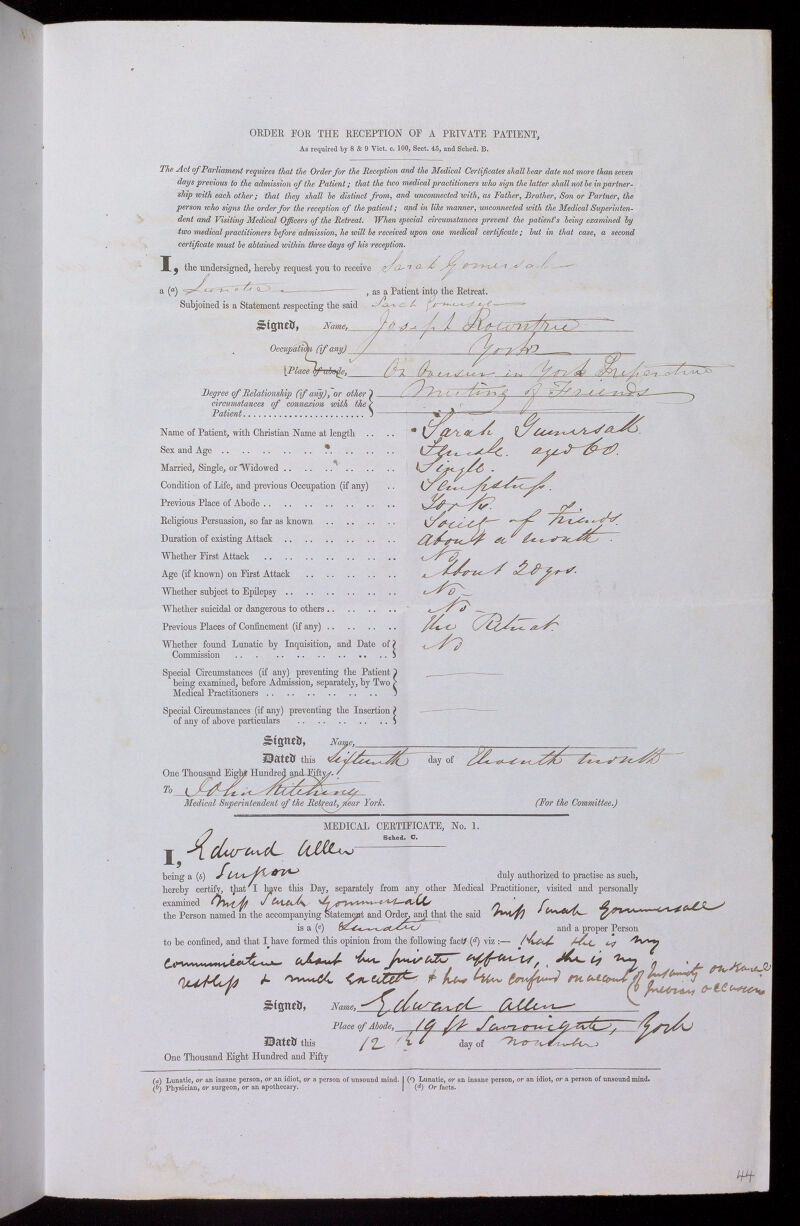 ORDER FOR THE RECEPTION OF A PRIVATE PATIENT,
As required by 8 & 9 Vict. c. 100, Sect. 45, and Sched. B.
The Act of Parliament requires that the Order for the Reception and the Medical Certificates shall bear date not more than seven
days previous to the admission of the Patient; that the two medical practitioners who sign the latter shall not be in partner-
ship with each other; that they shall be distinct from, and unconnected with, as Father, Brother, Son or Partner, the
person who signs the order for the reception of the patient; and in like manner, unconnected with the Medical Superinten-
dent and Visiting Medical Officers of the Retreat. When special circumstances prevent the patient's being examined by
two medical practitioners before admission, he will be received upon one medical certificate; but in that case, a second
certificate must be obtained within three days of his reception.
I, the undersigned, hereby request you to receive Sarah Gomersall
a (a) Lunatic , as a Patient into the Retreat.
Subjoined is a Statement respecting the said Sarah Gomersall
Signed, Name, Joseph Rowntree
Occupation (if any) York
Place of abode, An Overseer in York Preparative
Degree of Relationship (if any), or other circumstances of connexion with the Patient Meeting of Friends
Name of Patient, with Christian Name at length .. .. Sarah Gumersall.
Sex and Age .. .. Female. aged 60.
Married, Single, or Widowed .. .. Single.
Condition of Life, and previous Occupation (if any) .. Sempstress.
Previous Place of Abode .. .. York.
Religious Persuasion, so far as known .. .. Society of Friends.
Duration of existing Attack .. .. about a month.
Whether First Attack .. .. No
Age (if known) on First Attack .. .. About 20 yrs.
Whether subject to Epilepsy .. .. No
Whether suicidal or dangerous to others .. .. No
Previous Places of Confinement (if any) .. .. The Retreat.
Whether found Lunatic by Inquisition, and Date of Commission .. .. No
Special Circumstances (if any) preventing the Patient
being examined, before Admission, separately, by Two
Medical Practitioners .. ..
Special Circumstances (if any) preventing the Insertion
of any of above particulars .. ..
Signed, Name,
Dated this Sixteenth day of Eleventh month
One Thousand Eight Hundred and Fifty
To John Kitching
Medical Superintendent of the Retreat, near York. (For the Committee.)
MEDICAL CERTIFICATE, No. 1.
Sched. C.
I, Edward Allen
being a (b) Surgeon duly authorized to practise as such,
hereby certify, that I have this Day, separately from any other Medical Practitioner, visited and personally
examined Miss Sarah Gommersall
the Person named in the accompanying Statement and Order, and that the said Miss Sarah Gommersall
is a (c) Lunatic and a proper Person
to be confined, and that I have formed this opinion from the following facts (d) viz :— that she is very
communicative about her private affairs, she is very
restless & much excited & has been confined on account of Insanity on several
previous occasions
Signed, Name, Edward Allen
Place of Abode, 19 St Saviourgate, York
Dated this 12th day of November
One Thousand Eight Hundred and Fifty
(a) Lunatic, or an insane person, or an idiot, or a person of unsound mind.
(b) Physician, or surgeon, or an apothecary.
(c) Lunatic, or an insane person, or an idiot, or a person of unsound mind.
(d) Or facts.
44